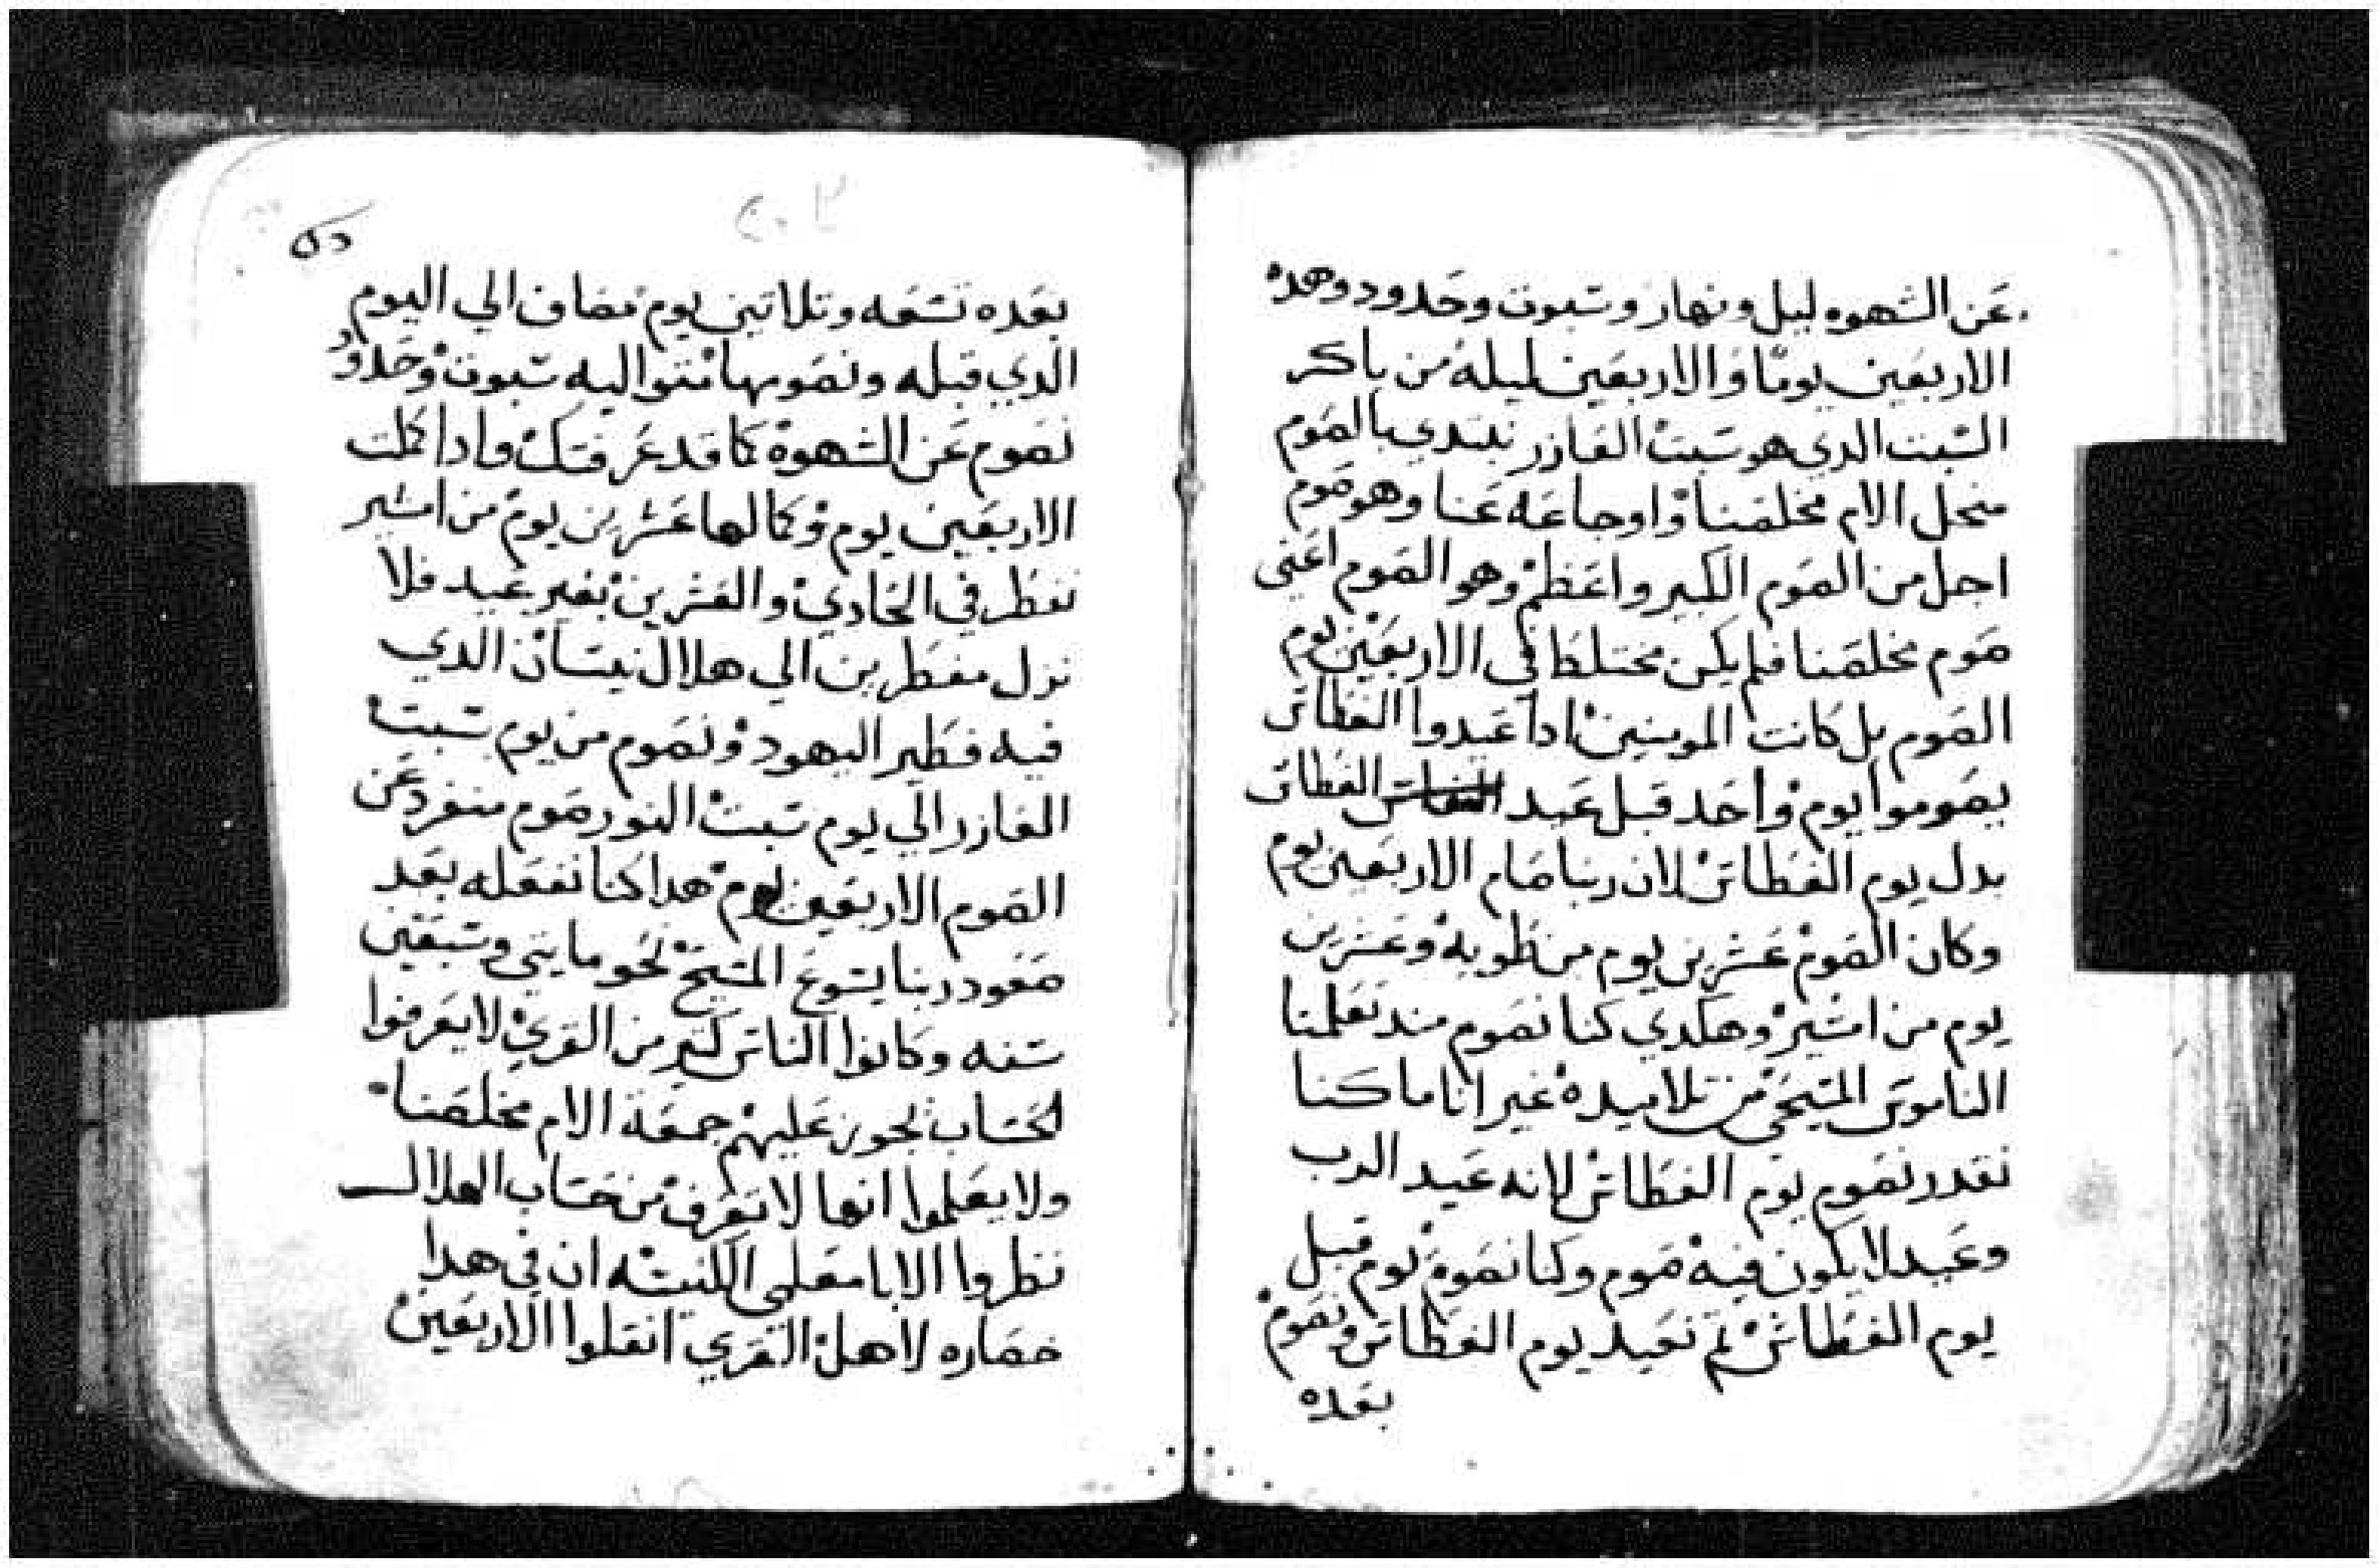 عن الشهوه ليل ونهار وسبوت وحدود وهده
الاربعين يومًا والاربعين ليله من باكر
السبت الدي هو سبت العازر نبتدي بالصوم
منجل الام مخلصنا واوجاعه عنا وهو صوم
اجل من الصوم الكبير واعظم وهو الصوم اعني
صوم مخلصنا فلم يكن مختلطا في الاربعين يوم
الصوم بل كانت المومنين ادا عيدوا الغطاس
يصوموا يوم واحد قبل عيد الغطاس
بدل يوم الغطاس لان ربنا صام الاربعين يوم
وكان الصوم عشرين يوم من طوبه وعشرين
يوم من امشير وهكدي كنا نصوم مند تعلمنا
الناموس المسيحي من تلاميده غير انا ما كنا
نقدر نصوم يوم الغطاس لانه عيد الرب
وعيد لا يكون فيه صوم وكنا نصوم يوم قبل
يوم الغطاس تم نعيد يوم الغطاس ونصوم
بعده
بعده تسعه وتلاتين يوم مضاف الي اليوم
الدي قبله ونصومها متواليه سبوت وحدود
نصوم عن الشهوه كما قد عرفتك وادا كملت
الاربعين يوم وكمالها عشرين يوم من امشير
نفطر في الحادي والعشرين بغير عيد فلا
نزل مفطرين الي هلال نيسان الدي
فيه فطير اليهود ونصوم من يوم سبت
العازر الي يوم سبت النور صوم منفرد عن
الصوم الاربعين يوم هدا كنا نفعله بعد
صعود ربنا يسوع المسيح نحو مايتي وسبعين
سنه وكانوا الناس كتير من القري لا يعرفوا
الحساب تجوز عليهم جمعة الام مخلصنا
ولا يعلموا انها لا تعرف من حساب الهلال
نظروا الابا معلمي الكنيسه ان في هدا
خصاره لاهل القري انقلوا الاربعين